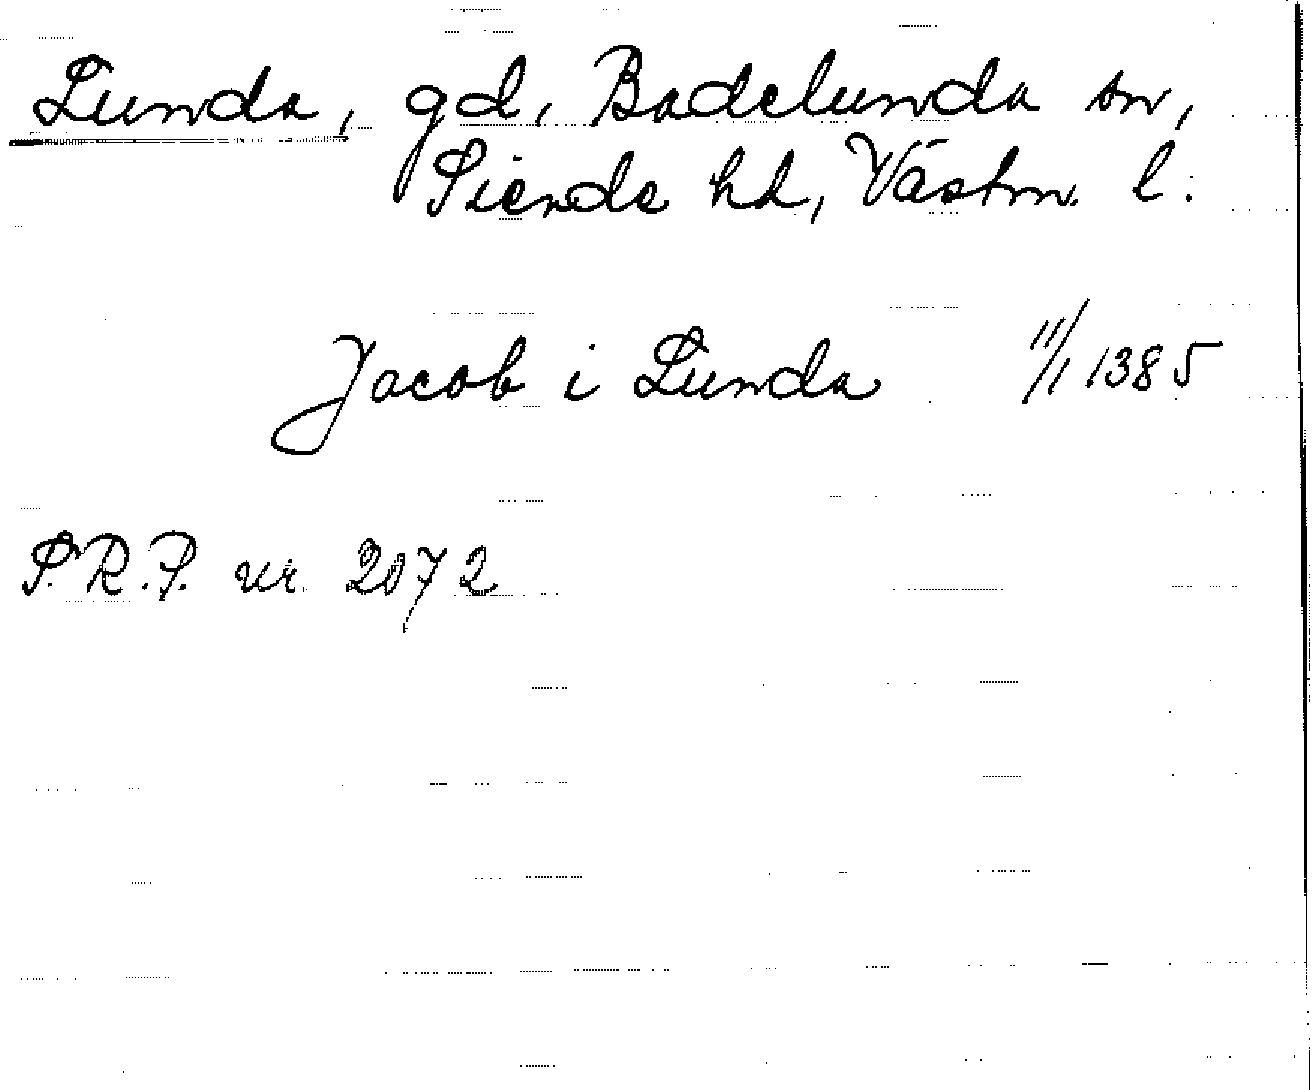 Lunda, gd, Badelunda sn,
Siende hd, Västm. l.
Jacob i Lunda 11/1 1385
S.R.P. nr. 2072